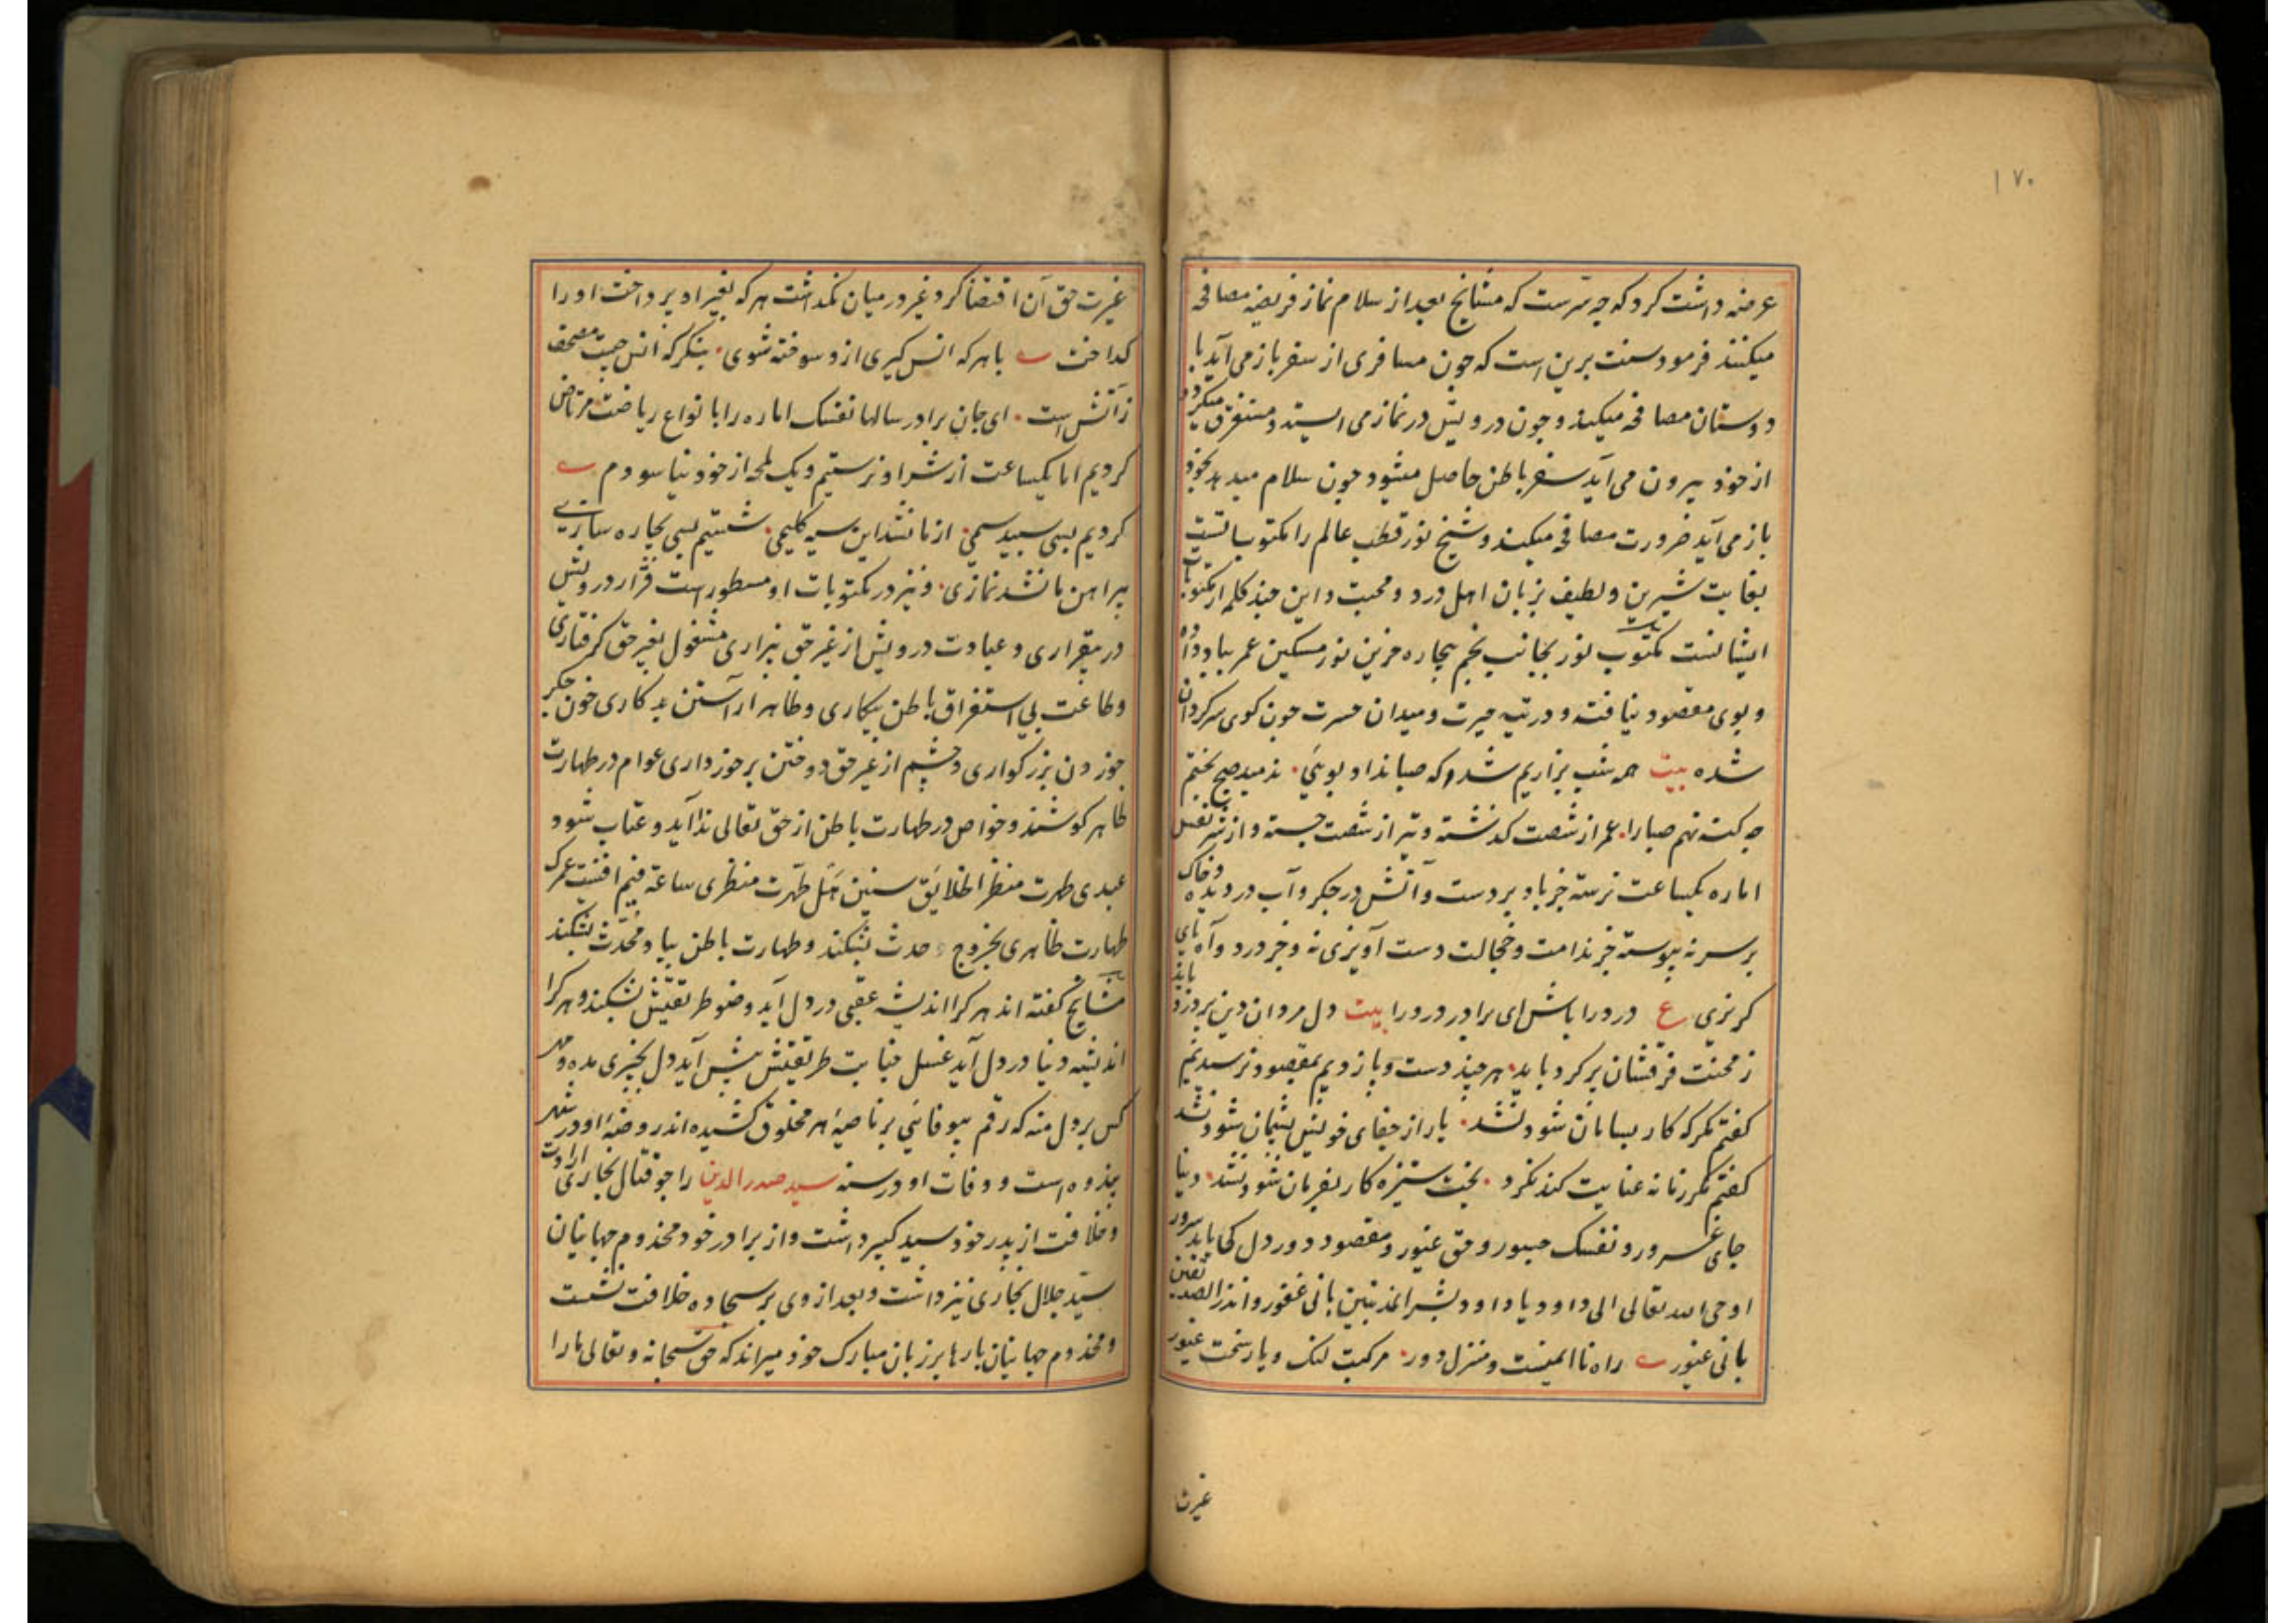 ۱۷۰
عرضه داشت کرد که چه سرست که مشایخ بعد از سلام نماز فریضه مصافحه
میکنند فرمود سنت برین است که چون مسافری از سفر باز می آید با
دوستان مصافحه میکند و چون درویش در نماز می ایستد و مستغرق میگردد
از خود بیرون می آید سفر باطن حاصل میشود چون سلام میدهد بخود
باز می آید ضرورت مصافحه میکند و شیخ نور قطب عالم را مکتوباتست
بغایت شیرین و لطیف بزبان اهل درد و محبت و این چند کلمه از مکتوبات
ایشانست مکتوب نور بجانب نجم بیچاره حزین نور مسکین عمر بباد داده
و بوی مقصود نیافته و در تیه حیرت و میدان حسرت چون کوی سرکردان
شده بیت همه شب بزاریم شد که صبا نداد بویی. ندمید صبح بختم
چه کنه نهم صبا را. عمر از شصت کذشته و تیر از شصت جسته و از شر نفس
اماره یکساعت نرسته جز باد بر دست و آتش در جکر و آب در دیده و خاک
بر سر نه پیوسته جز ندامت و خجالت دست آویزی نه و جز درد و آه پای
کریزی ع درد را باش ای برادر درد را بیت دل مردان دین پر درد باید
ز محنت فرقشان پر کرد باید. هر چند دست و پا زدیم بمقصود نرسیدیم
کفتم مکر که کار بسامان شود نشد. یار از جفای خویش پشیمان شود نشد
کفتم مکر زمانه عنایت کند نکرد. بخت ستیزه کار بفرمان شود نشد. دنیا
جای غرور و نفسک حسور و حق غیور و مقصود دور دل کی یابد سرور
اوحی الله تعالی الی داود یا داود بشر المذنبین بانی غفور و انذر الصدیقین
بانی غیور راه نا ایمنست و منزل دور. مرکبت لنک و یار سخت غیور
غیرت
غیرت حق آن اقتضا کرد غیر در میان نکذاشت هر که بغیر او پرداخت او را
کداخت با هر که انس کیری ازو سوخته شوی. بنکر که انس چیست مصحف
ز آتش است. ای جان برادر سالها نفسک اماره را بانواع ریاضت مرتاض
کردیم اما یکساعت از شر او نرستیم و یک لمحه از خود نیاسودم
کردیم بسی سپید سمی. از ما نشد این سیه کلیمی. شستیم بسی بچاره سازی
پیراهن ما نشد نمازی. و نیز در مکتوبات او مسطور است قرار درویش
در بیقراری و عبادت درویش از غیر حق بیزاری مشغول بغیر حق کرفتاری
و طاعت بی استغراق باطن بیکاری و ظاهر آراستن بدکاری خون جکر
خوردن بزرکواری و چشم از غیر حق دوختن برخورداری عوام در طهارت
ظاهر کوشند و خواص در طهارت باطن از حق تعالی ندا آید و عتاب شود
عبدی طهرت منظر الخلایق سنین هل طهرت منظری ساعة فیم افنیت عمرک
طهارت ظاهری بخروج حدث بشکند و طهارت باطن بیاد محدث بشکند
مشایخ کفته اند هر کرا اندیشه عقبی در دل آید وضوی طریقتش بشکند و هر کرا
اندیشه دنیا در دل آید غسل جنابت طریقتش پیش آید دل بچیزی مده و مهر
کس بر دل منه که رقم بیوفایی بر ناصیه هر مخلوق کشیده اند روضه او در شهر
پندوه است و وفات او در سنه سید صدر الدین راجو قتال بخاری ارادت
و خلافت از پدر خود سید کبیر داشت و از برادر خود مخدوم جهانیان
سید جلال بخاری نیز داشت و بعد از وی بر سجاده خلافت نشست
و مخدوم جهانیان بارها بر زبان مبارک خود میراند که حق سبحانه و تعالی ما را